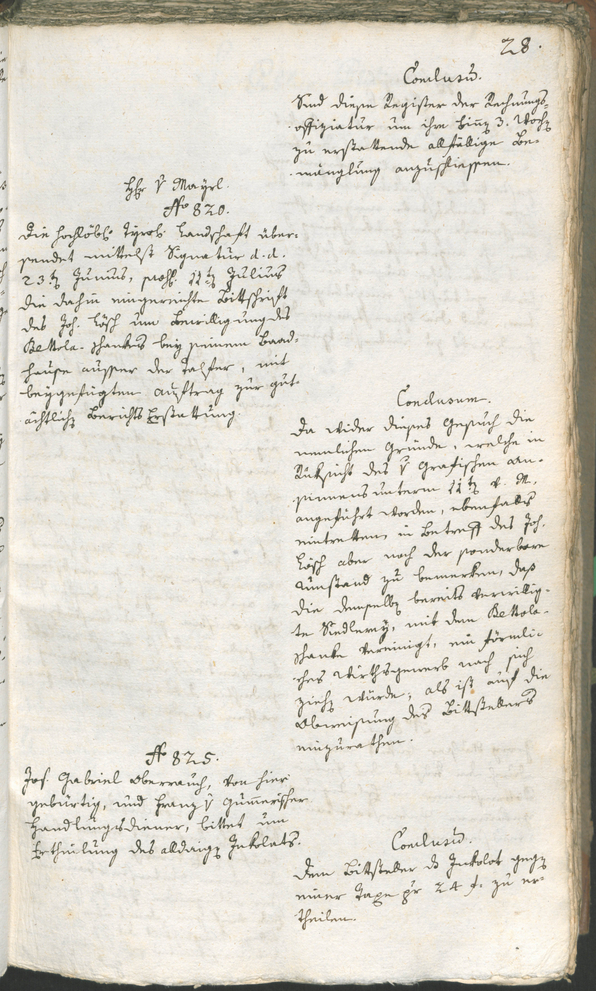 28.
Conclusũ.
Sind diese Register der Rechnungs-
offiziatur um ihre binn 3. Woch
zu erstattende allfällige Be-
mänglung anzuschliessen.
Hhr v Mayrl.
No 820.
Die hochlöbl. Tyrol. Landschaft über-
sendet mittelst Signatur d. d.
23t Junius, 11t Julius
die dahin eingereichte Bittschrift
des Joh. Lösch um Bewilligung des
Bettola-schankes bey seinem Baad-
hause ausser der Talfer, mit
beygefügten Auftrag zur gut-
ächtlich Berichts Erstattung.
Conclusum.
Da wider dieses Gesuch die
nemlichen Gründe, welche in
Rüksicht des v Grafischen An-
sinnens unterm 11t d. M.
angeführt worden, ebenfalls
eintretten, in Betreff des Joh.
Lösch aber noch der sonderbare
Umstand zu bemerken, daß
die demselb bereits verwillig-
te Siederey, mit dem Bettola-
schanke vereinigt, ein förmli-
ches Wirthsgewerb nach sich
zieh würde, als ist auf die
Abweisung des Bittstellers
einzurathen.
No 825.
Jos. Gabriel Oberrauch, von hier
gebürtig, und Franz v Gumerischer
Handlungsdiener, bittet um
Ertheilung des Inkolats.
Conclusũ.
Dem Bittsteller ds Inkolat geg
einer Taxe pr 24 f. zu er-
theilen.